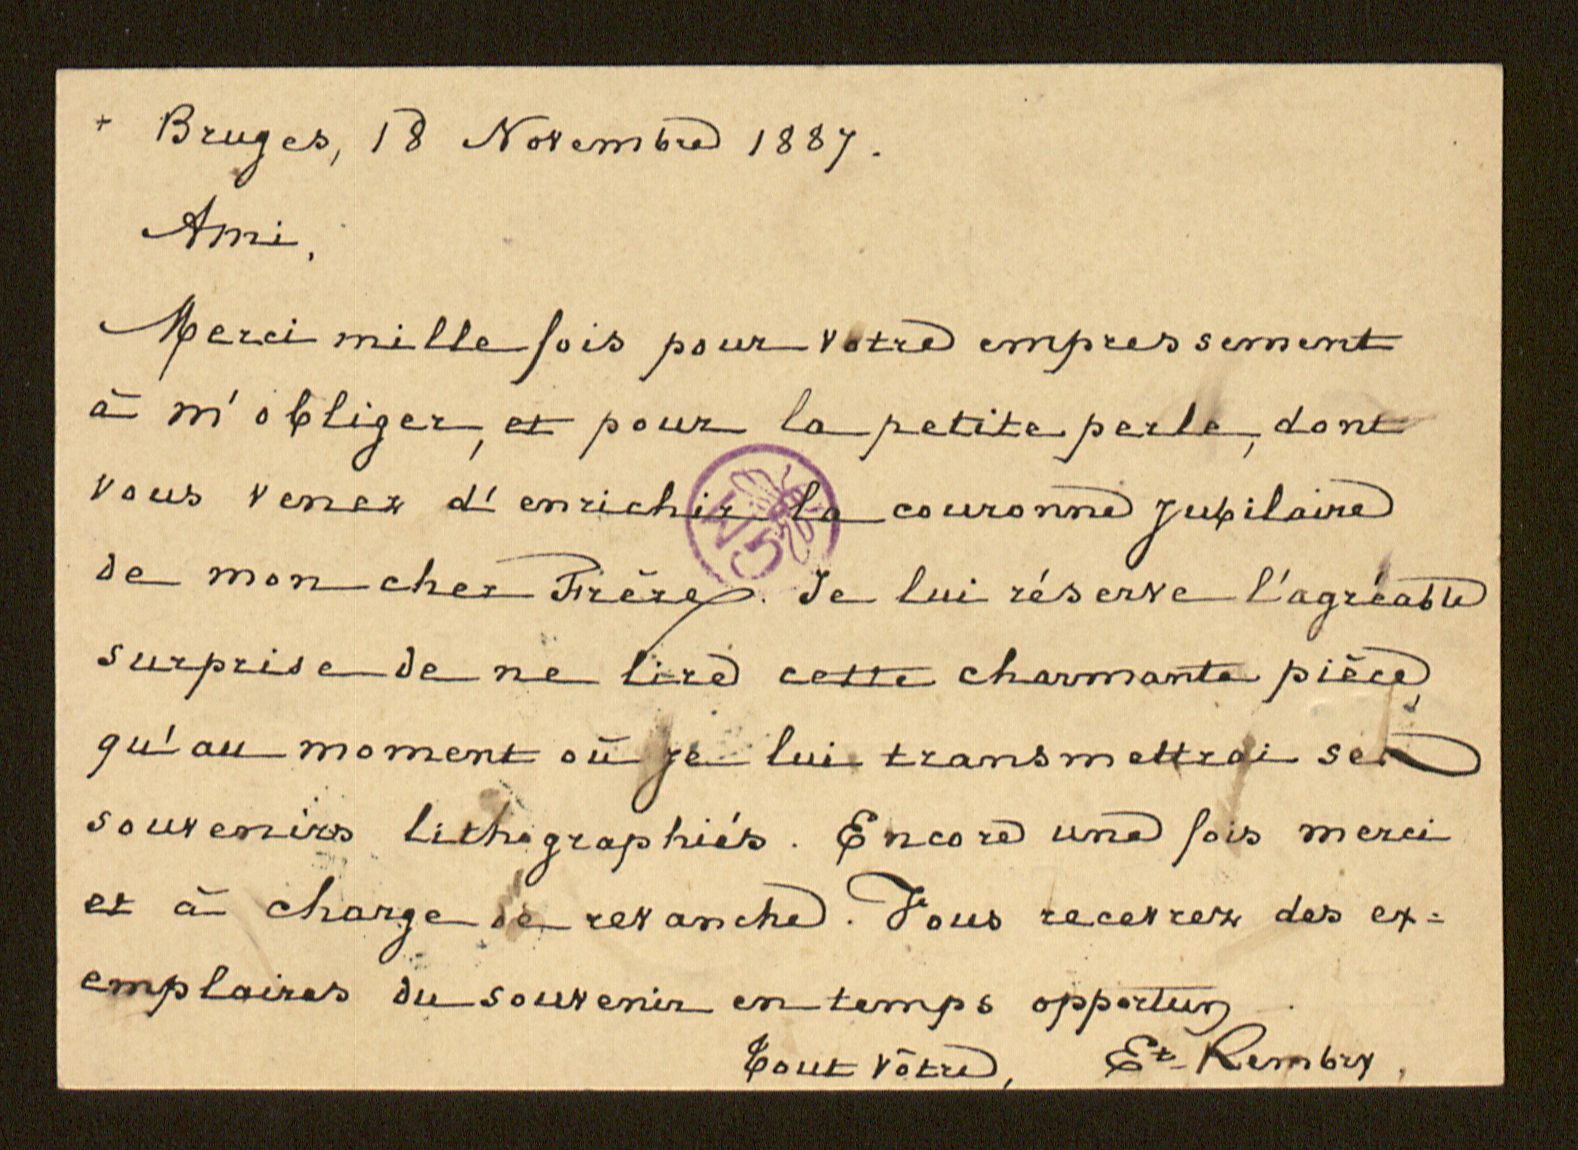 + Bruges, 18 Novembre 1887.
Ami,
Merci mille fois pour votre empressement
à m'obliger, et pour la petite perle, dont
vous venez d'enrichir la couronne jubilaire
de mon cher Frère. Je lui réserve l'agréable
surprise de ne lire cette charmante pièce,
qu'au moment où je lui transmettrai ses
souvenirs lithographiés. Encore une fois merci
et à charge de revanche. Vous recevrez des ex=
emplaires du souvenir en temps opportun.
Tout vôtre, Et. Rembry.